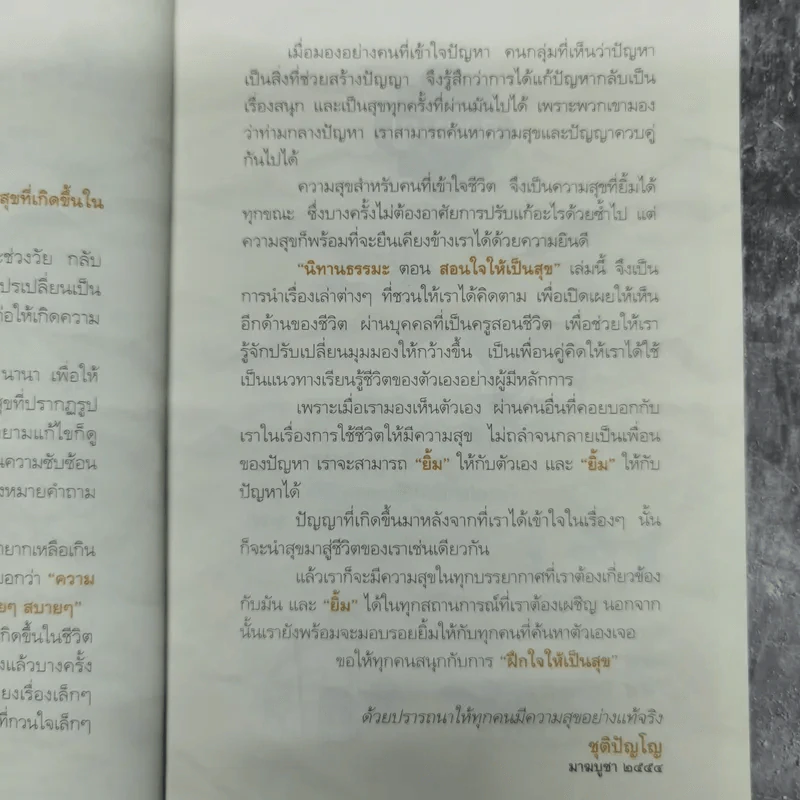 สุขที่เกิดขึ้นใน
ะช่วงวัย กลับ
ปรเปลี่ยนเป็น
่อให้เกิดความ
นานา เพื่อให้
สุขที่ปรากฏรูป
ยามแก้ไขก็ดู
นความซับซ้อน
งหมายคำถาม
ายากเหลือเกิน
บอกว่า “ความ
ยๆ สบายๆ”
กิดขึ้นในชีวิต
งแล้วบางครั้ง
ยงเรื่องเล็กๆ
ที่กวนใจเล็กๆ
เมื่อมองอย่างคนที่เข้าใจปัญหา คนกลุ่มที่เห็นว่าปัญหา
เป็นสิ่งที่ช่วยสร้างปัญญา จึงรู้สึกว่าการได้แก้ปัญหากลับเป็น
เรื่องสนุก และเป็นสุขทุกครั้งที่ผ่านมันไปได้ เพราะพวกเขามอง
ว่าท่ามกลางปัญหา เราสามารถค้นหาความสุขและปัญญาควบคู่
กันไปได้
ความสุขสำหรับคนที่เข้าใจชีวิต จึงเป็นความสุขที่ยิ้มได้
ทุกขณะ ซึ่งบางครั้งไม่ต้องอาศัยการปรับแก้อะไรด้วยซ้ำไป แต่
ความสุขก็พร้อมที่จะยืนเคียงข้างเราได้ด้วยความยินดี
“นิทานธรรมะ ตอน สอนใจให้เป็นสุข” เล่มนี้ จึงเป็น
การนำเรื่องเล่าต่างๆ ที่ชวนให้เราได้คิดตาม เพื่อเปิดเผยให้เห็น
อีกด้านของชีวิต ผ่านบุคคลที่เป็นครูสอนชีวิต เพื่อช่วยให้เรา
รู้จักปรับเปลี่ยนมุมมองให้กว้างขึ้น เป็นเพื่อนคู่คิดให้เราได้ใช้
เป็นแนวทางเรียนรู้ชีวิตของตัวเองอย่างผู้มีหลักการ
เพราะเมื่อเรามองเห็นตัวเอง ผ่านคนอื่นที่คอยบอกกับ
เราในเรื่องการใช้ชีวิตให้มีความสุข ไม่ถลำจนกลายเป็นเพื่อน
ของปัญหา เราจะสามารถ “ยิ้ม” ให้กับตัวเอง และ “ยิ้ม” ให้กับ
ปัญหาได้
ปัญญาที่เกิดขึ้นมาหลังจากที่เราได้เข้าใจในเรื่องๆ นั้น
ก็จะนำสุขมาสู่ชีวิตของเราเช่นเดียวกัน
แล้วเราก็จะมีความสุขในทุกบรรยากาศที่เราต้องเกี่ยวข้อง
กับมัน และ “ยิ้ม” ได้ในทุกสถานการณ์ที่เราต้องเผชิญ นอกจาก
นั้นเรายังพร้อมจะมอบรอยยิ้มให้กับทุกคนที่ค้นหาตัวเองเจอ
ขอให้ทุกคนสนุกกับการ “ฝึกใจให้เป็นสุข”
ด้วยปรารถนาให้ทุกคนมีความสุขอย่างแท้จริง
ชุติปัญโญ
มาฆบูชา ๒๕๕๔